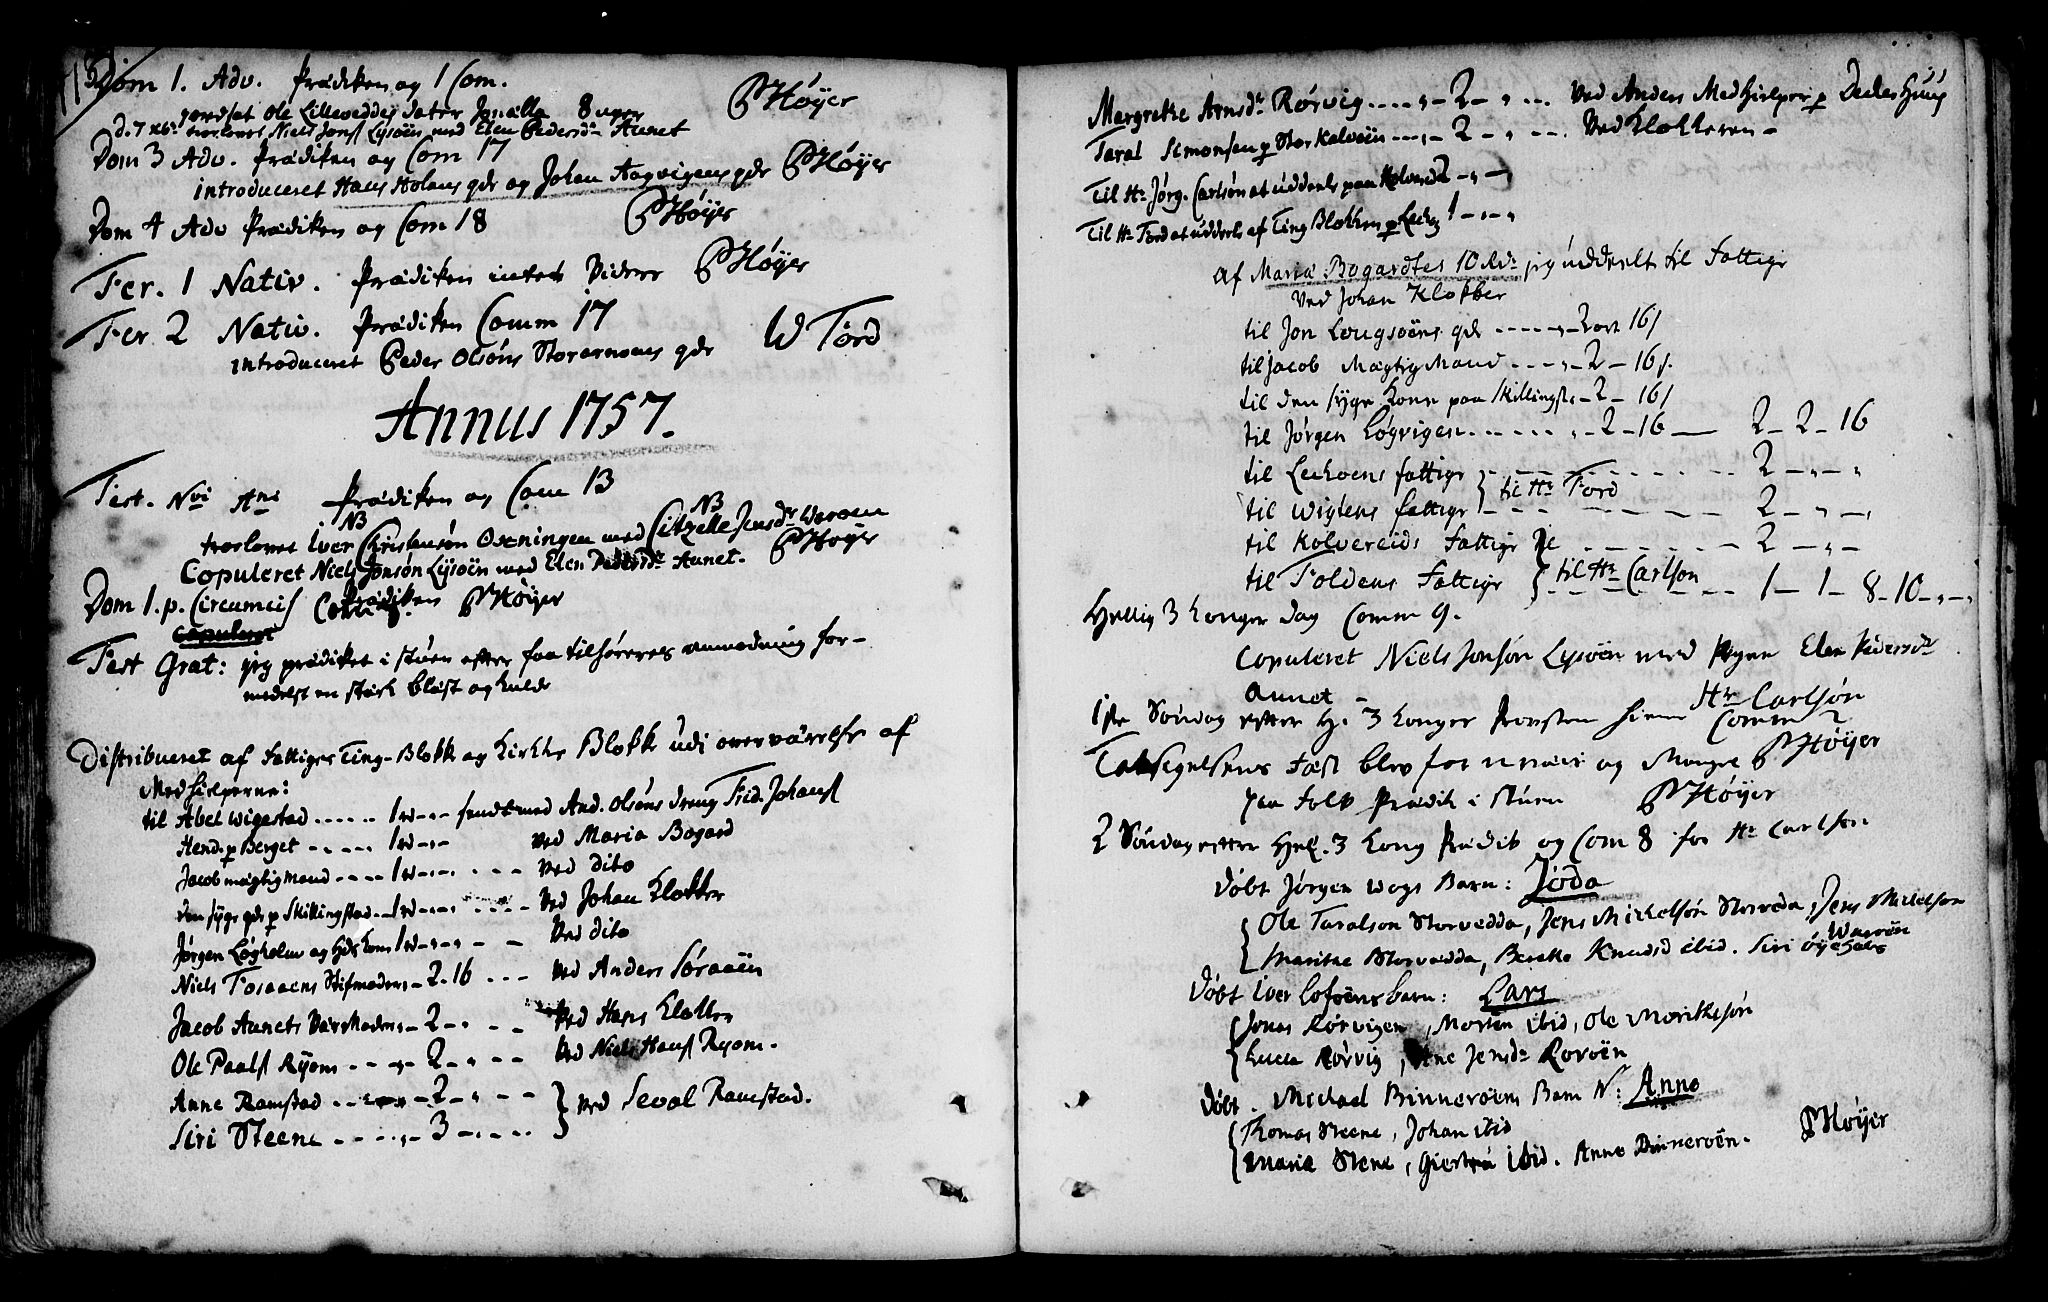 Dom 1. Adv. Prædiken og 1 Com. PHøyer
jordset Ole Lilleveddes dater Jonella 8 uger
d. 7 xbr. trorlovet Niels Jons Lysøen med Elen Pedersdr Aunet
Dom 3 Adv. Prædiken og Com 17
introduceret Hans Holens qde og Johan Aagvigens qde PHøyer
Dom 4 Adv Prædiken og Com 18 PHøyer
Fer. 1 Nativ. Prædiken intet Videre PHøyer
Fer 2 Nativ. Prædiken Comm 17
introduceret Peder Olsøns Storarnøens qde W Tørd
Annus 1757.
Fest. Nvi Ani Prædiken og Com 13
NB NB
trorlovet Iver Christensøn Oxningen med Citzelle Jensdr Værøen
Copuleret Niels Jonsøn Lysøen med Elen Pedersdr Aunet. PHøyer
Dom 1. p. Circumcis Prædiken PHøyer
Copuleret
Fest Grat: jeg prædiket i stuen efter faa tilhøreres anmodning for-
medelst en stærk blæst og kulde
Distribueret af Fattiges Ting-Blokk og Kirkke Blokk udi overværelse af
Medhielperne:
til Abel Wigestad ..... 1 - - - sendt med And. Olsøns dreng Frid. Johans
Hend. p Berget ..... 1 - - Ved Maria Bogard
Jacob mægtig Mand .... 1 - - - Ved dito
den syge qde p Skillingstad - 1 - - - Ved Johan Klokker
Jørgen Løgholm og Hds Kone 1 - - - Ved dito
Niels Foraaens Stifmoder - 2 - 16 ... Ved Anders Søraaen
Jacob Aunets Værmoder - 2 - - - Ved Hans Klokker
Ole Paals Ryom ... - 2 - - - Ved Niels Hans Ryom.
Anne Ramstad ... - 2 - - - Ved Seval Ramstad.
Siri Steene .... - 3 - - -
Margrethe Arnsdr Rørvig .... - 2 - - ... Ved Anders Medhielper p Dedes Huus
Taral Simonsen p Stor Kalvøen ... - 2 - - ... Ved Klokkeren -
Til Hr Jørg. Carlsøn at uddeele paa Kolvered 2 - - -
Til Hr Tørd at uddeele af Ting Blokken p Leckø 1 - - -
af Maria Bogardtes 10 Rdr jeg uddeelt til Fattige
Ved Johan Klokker
til Jon Lougsøens qde ..... - 2 ort 16 s
til Jacob Mægtig Mand .... - 2 - 16 s.
til den syge Kone paa Skillingst. - 2 - 16 s
til Jørgen Løgvigen...... - 2 - 16 — 2 - 2 - 16
til Leckøens fattige - - - 2 - - -
til Hr Tørd
til Wigtens fattige - - - 2 - - -
til Kolvereids Fattige - - - 2 - - -
til Hr Carlsøn
til Foldens Fattige - - - 1 - 1 - 8 - 10 - - -
Hellig 3 Konger Dag Comm 9.
Copuleret Niels Jonsøn Lysøen med Pigen Elen Pedersdr
Aunet -
1ste Søndag efter H. 3 Konger Provsten hiem Hr Carlsøn
Comm 2
Taksigelsens Fæst blev for uveir og Mangel PHøyer
paa Folk Prædik i stuen PHøyer
2 Søndag efter Hel. 3 Kong Prædik og Com 8 for Hr Carlsøn
Døbt Jørgen Wogs Barn: Joda
Ole Taralson Storvedda, Jens Mickelsøn Storveda, Jens Mickelson
Værøen
Marithe Storvedda, Berette Knudsd ibid. Siri
Døbt Iver Loføens barn: Lars
Jonas Rørvigen, Morten ibid, Ole Morithsøn
Lucia Rørvig, Ane Jensdr Rorøen
Døbt. Michael Binnerøens Barn N: Anne
Thomas Steene, Johan ibid PHøyer
Maria Stene, Giertru ibid. Anne Binnerøen.